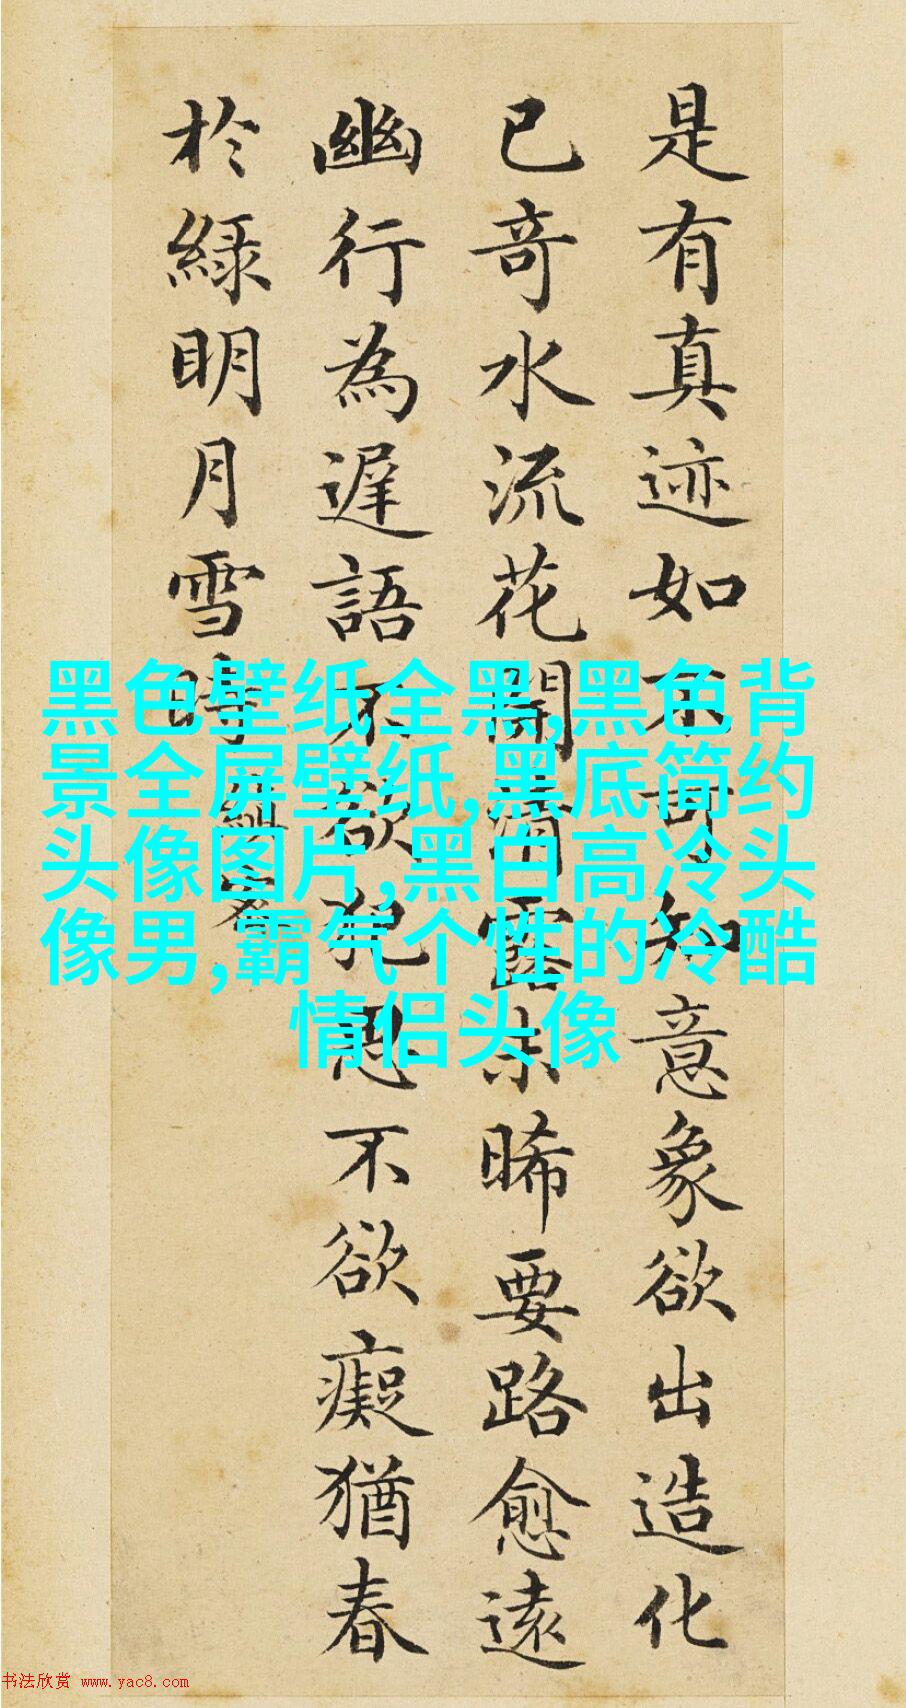 是有真迹如不可知意象欲出造化
已奇水流花開清露未晞要路愈遠
幽行為遲語不欲犯思不欲癡猶春
於綠明月雪時
黑色壁纸全黑,黑色背
景全屏壁纸,黑底简约
头像图片,黑白高冷头
像男,霸气个性的冷酷
情侣头像
书法欣赏 www.yac8.com